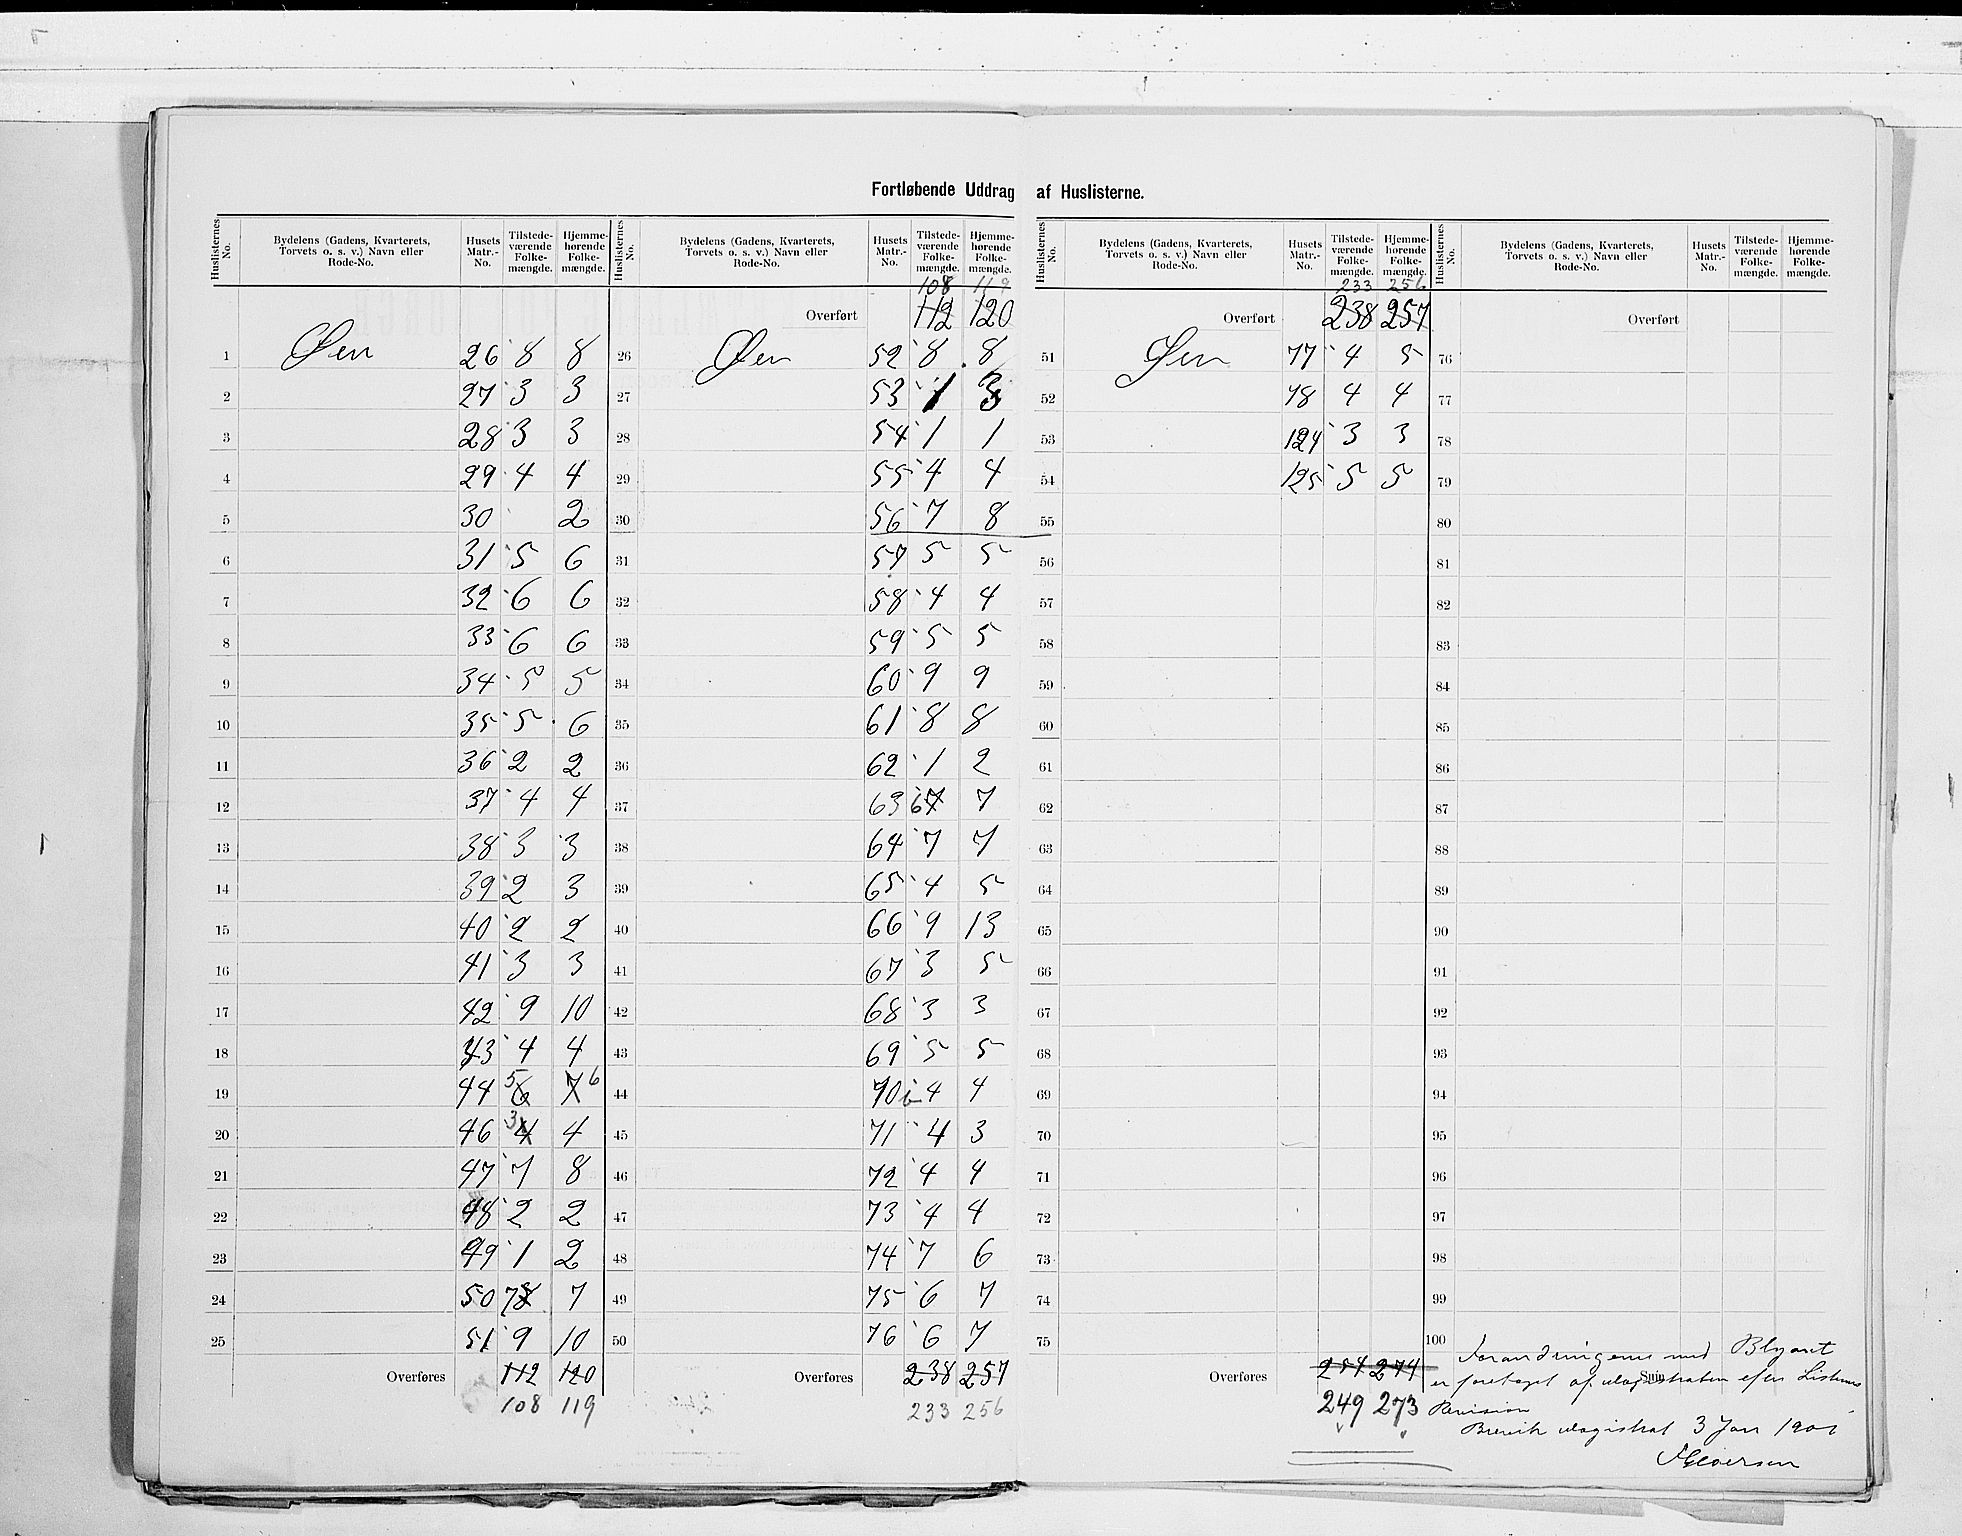 Fortløbende Uddrag af Huslisterne.
Huslisternes No. | Bydelens (Gadens, Kvarterets, Torvets o. s. v.) Navn eller Rode-No. | Husets Matr.-No. | Tilstedeværende Folkemængde. | Hjemmehørende Folkemængde.
1 Øen 26 8 8
2 27 3 3
3 28 3 3
4 29 4 4
5 30 2
6 31 5 6
7 32 6 6
8 33 6 6
9 34 5 5
10 35 5 6
11 36 2 2
12 37 4 4
13 38 3 3
14 39 2 3
15 40 2 2
16 41 3 3
17 42 9 10
18 43 4 4
19 44 5 6 7 6
20 46 3 4 4
21 47 7 8
22 48 2 2
23 49 1 2
24 50 7 8 7
25 51 9 10
Overføres 112 120
108 119
Huslisternes No. | Bydelens (Gadens, Kvarterets, Torvets o. s. v.) Navn eller Rode-No. | Husets Matr.-No. | Tilstedeværende Folkemængde. | Hjemmehørende Folkemængde.
108 119
Overført 112 120
26 Øen 52 8 8
27 53 1 3
28 54 1 1
29 55 4 4
30 56 7 8
31 57 5 5
32 58 4 4
33 59 5 5
34 60 9 9
35 61 8 8
36 62 1 2
37 63 6 7 7
38 64 7 7
39 65 4 5
40 66 9 13
41 67 3 5
42 68 3 3
43 69 5 5
44 70 4 4
45 71 4 3
46 72 4 4
47 73 4 4
48 74 7 6
49 75 6 7
50 76 6 7
Overføres 238 257
233 256
Huslisternes No. | Bydelens (Gadens, Kvarterets, Torvets o. s. v.) Navn eller Rode-No. | Husets Matr.-No. | Tilstedeværende Folkemængde. | Hjemmehørende Folkemængde.
233 256
Overført 238 257
51 Øen 77 4 5
52 78 4 4
53 124 3 3
54 125 5 5
55
56
57
58
59
60
61
62
63
64
65
66
67
68
69
70
71
72
73
74
75
Overføres 254 274
249 273
Huslisternes No. | Bydelens (Gadens, Kvarterets, Torvets o. s. v.) Navn eller Rode-No. | Husets Matr.-No. | Tilstedeværende Folkemængde. | Hjemmehørende Folkemængde.
Overført
76
77
78
79
80
81
82
83
84
85
86
87
88
89
90
91
92
93
94
95
96
97
98
99
100
Sum
Forandringerne med Blyant
er foretaget af Magistraten efter Listernes
Revision
Brevik Magistrat 3 Jan 1901